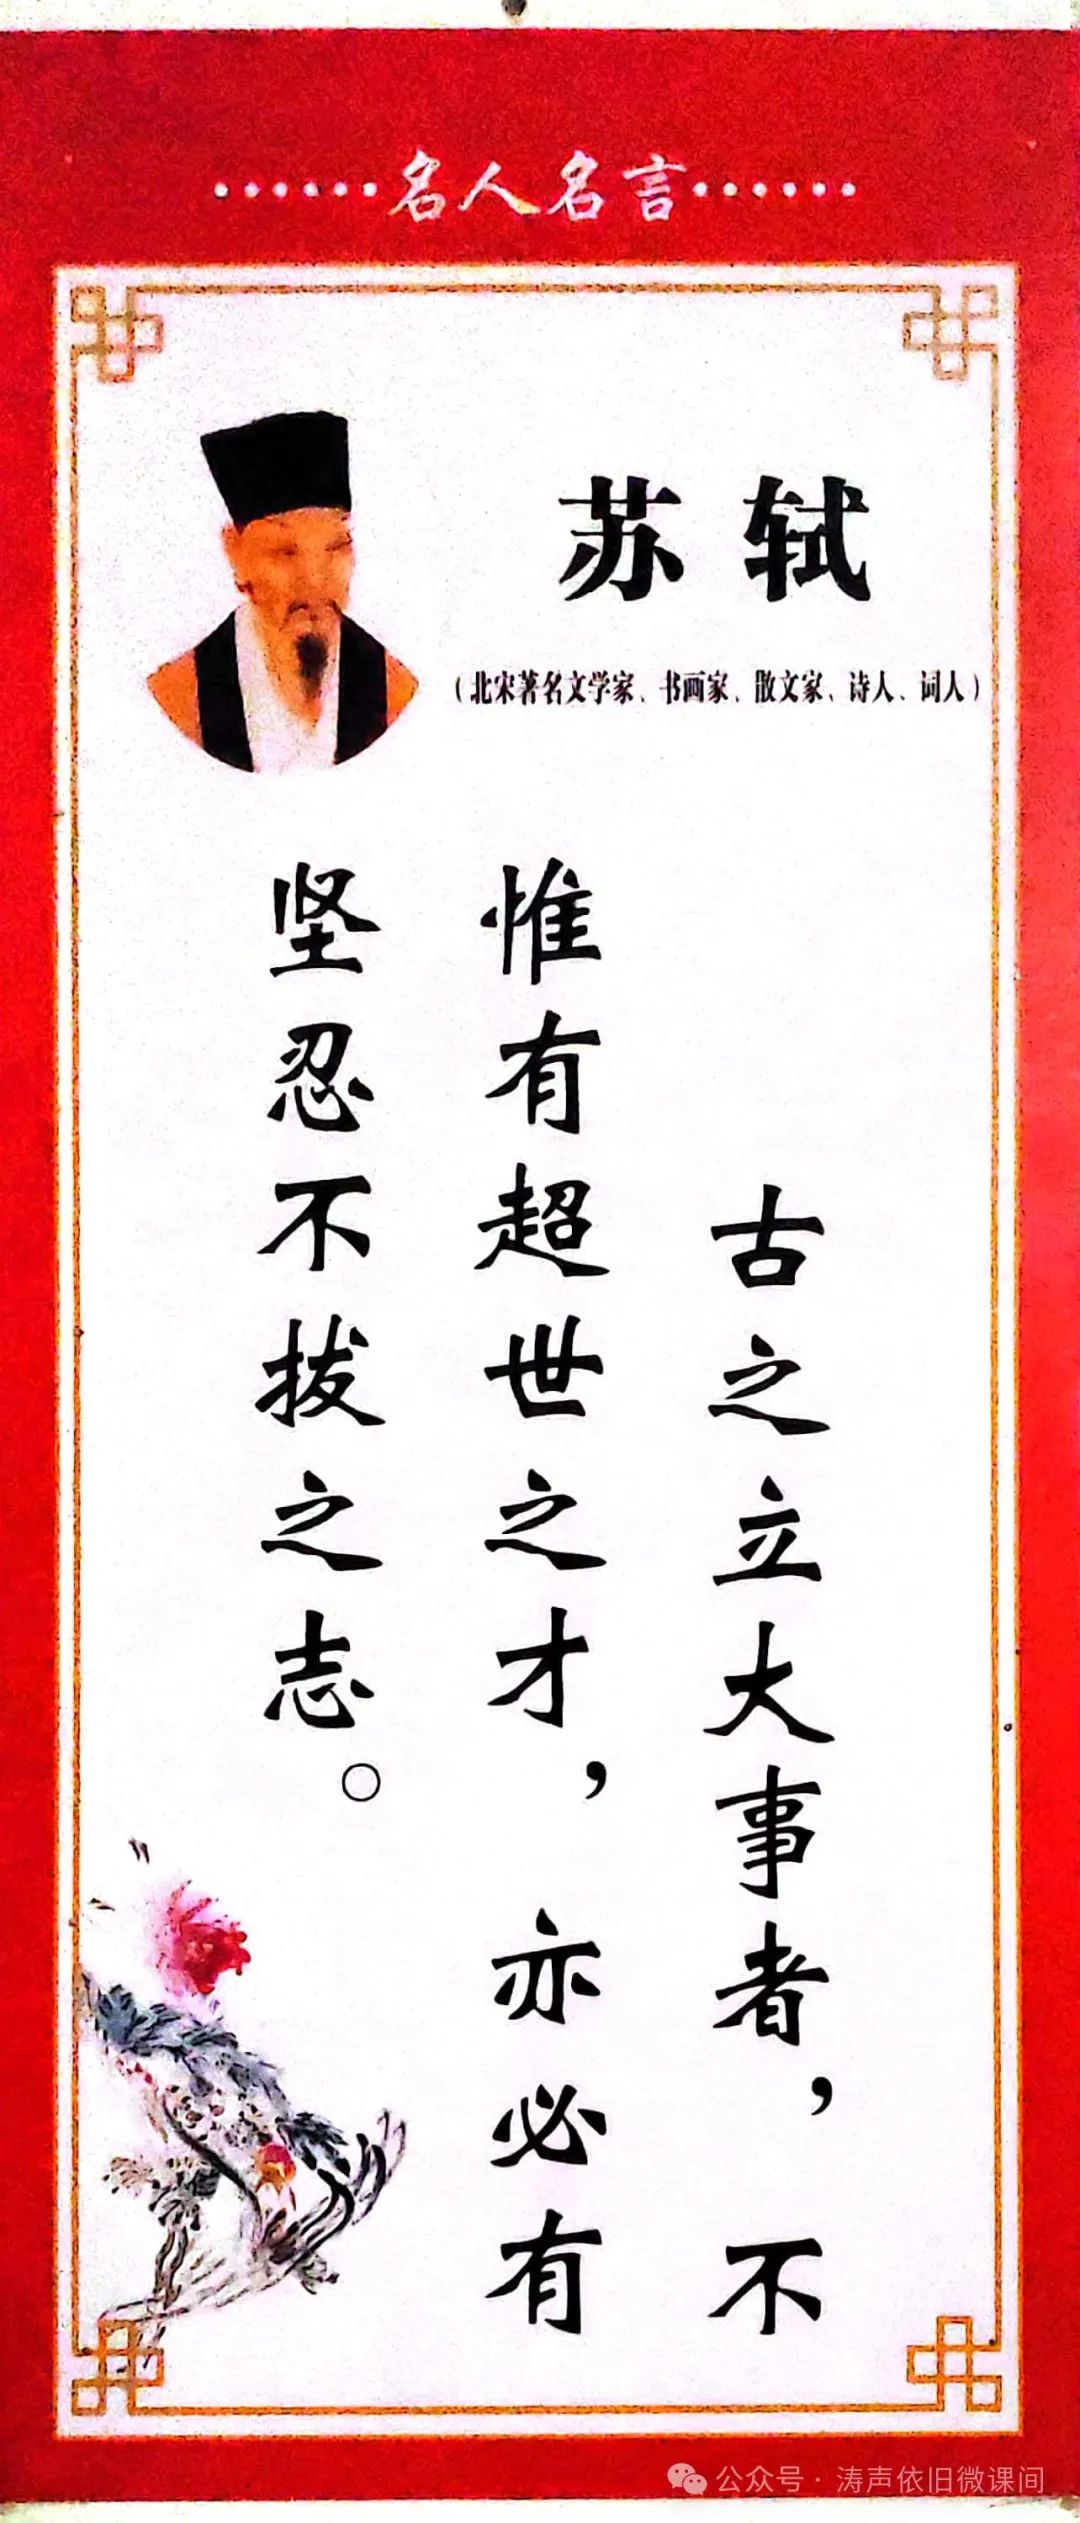 ……名人名言……
苏轼
（北宋著名文学家、书画家、散文家、诗人、词人）
古之立大事者，不
惟有超世之才，亦必有
坚忍不拔之志。
公众号·涛声依旧微课间